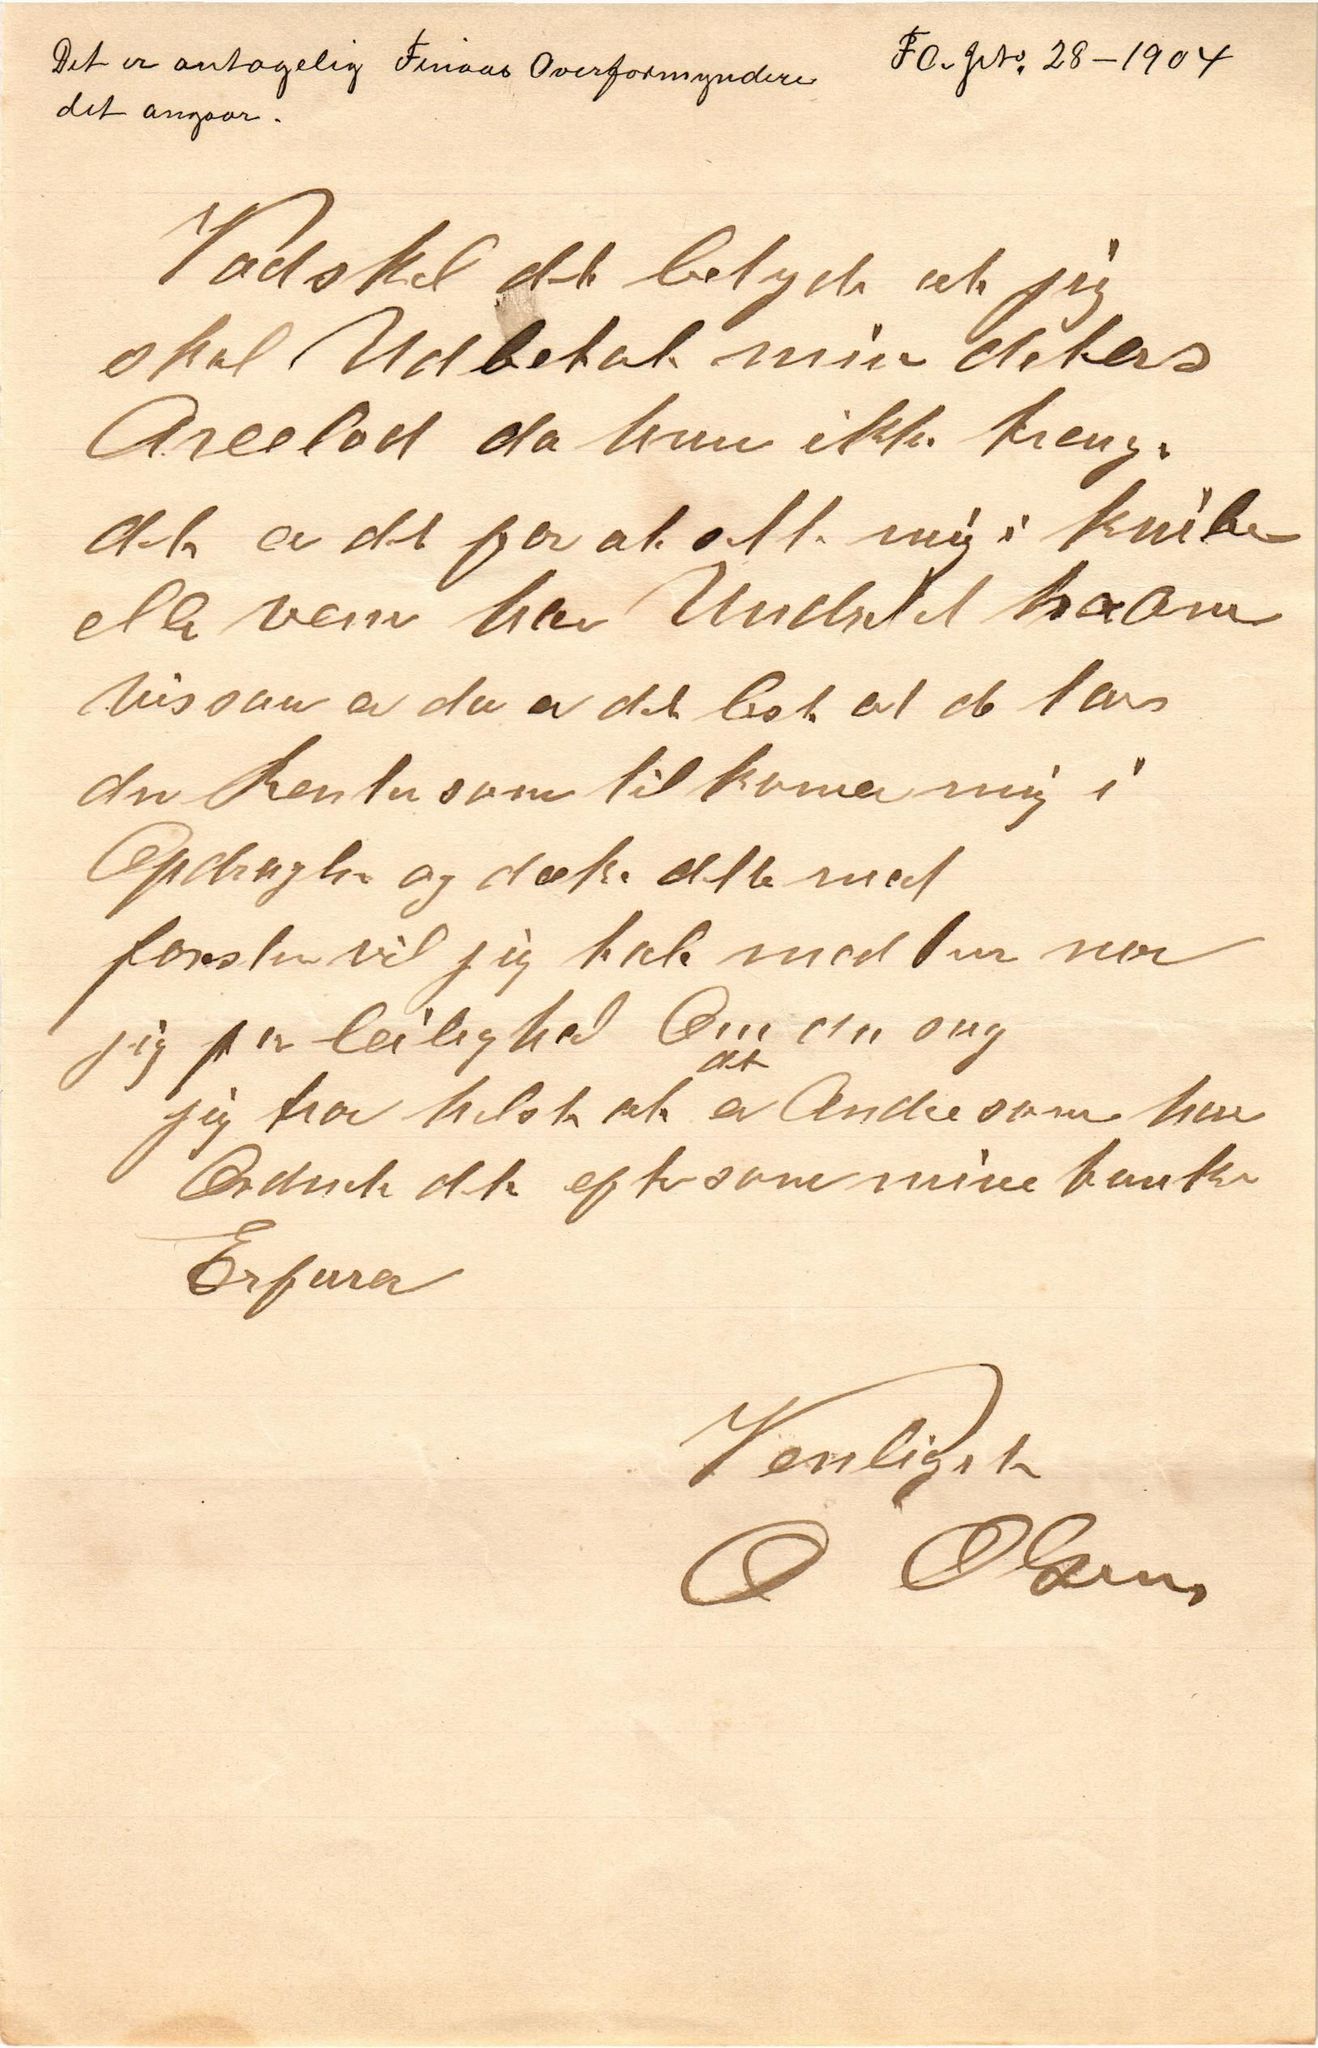 Det er antagelig Finaas Overformynderi
det angaar.
28-1904
Vad skal det betyde at jeg
skal Udbetale min deters
Arvelod da hun ikke trenge
det er det for at sette mig i knibe
elle vem har
vis saa er da er det best at de tar
den Renten som tilkomer mig i
og dæke dette med
vil jeg tale med nor
jeg far leilighed Om den sag
jeg tror helst at det er Andre som har
Ordnet det eftersom mine tanke
Erfarer
Venligst
O Olsen